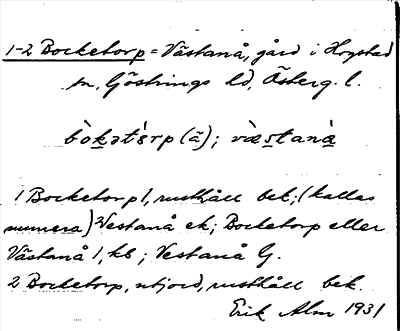 1-2 Bocketorp = Västanå, gård i Hogstad
sn, Göstrings hd, Österg. l.
bò̀kǝtʹɛrp (ã); væ̀stanà
1 Bocketorp 1, rusthåll bek; (kallas
numera) Westanå ek; Bocketorp eller
Västanå 1, kb; Vestanå G.
2 Bocketorp, utjord, rusthåll bek.
Erik Alm 1931